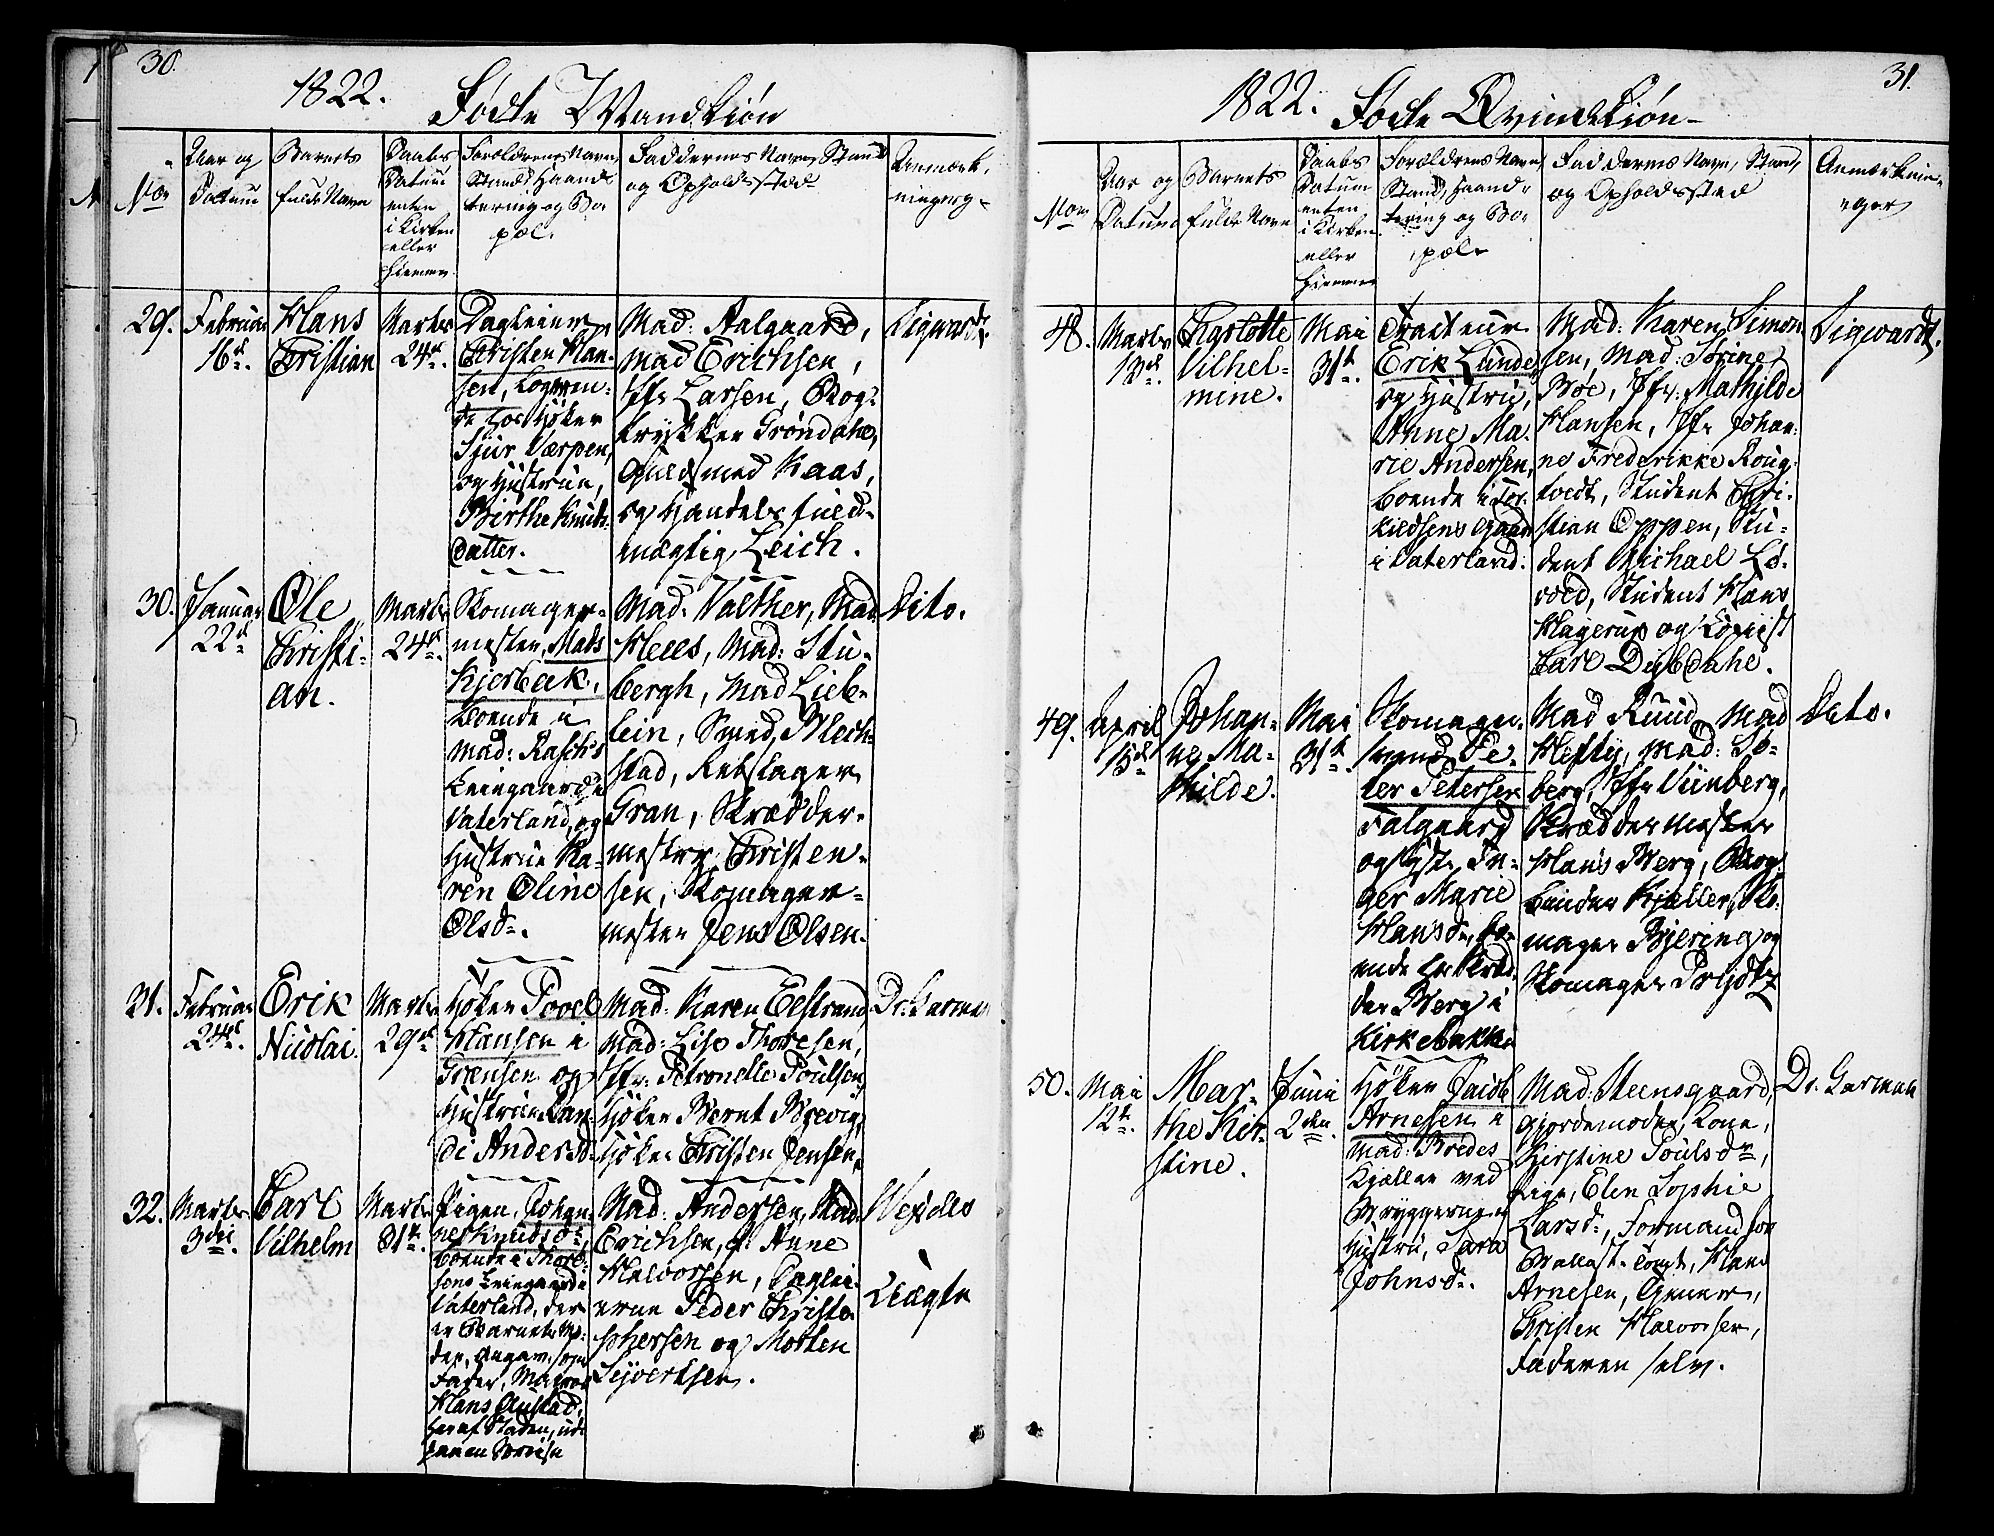 30.
1822. Fødte Mandkiøn
No.
Aar og
Datum
Barnets
fulde Navn
Daabs
Datum
enten
i Kirken
eller
hiemme
Forældrenes Navn,
Stand, Haand-
tering og Bo-
pæl.
Faddernes Navn, Stand
og Opholdssted
Anmærk-
ninger
29.
Februar
16de.
Hans
Christian
Marts
24de.
Dagleier
Christen Han-
sen, Logeren-
de hos Høker
Siur Værpen,
og Hustrue,
Birthe Knuds-
datter.
Mad: Aalgaard,
Mad Erichsen,
Jfr Larsen, Bog-
trykker Grøndahl,
Guldsmed Kaas,
og Handelsfuld-
mægtig Leich.
Sigwardt.
30.
Januar
22de
Ole
Christi-
an.
Marts
24de.
Skomager-
mester, Mads
Kjerbeck,
boende i
Mad: Rasch's
Leiegaard i
Vaterland, og
Hustrue Ka-
ren Oline
Olsdr.
Mad: Valther, Mad
Hells, Mad: Stu-
bergh, Mad Lieb-
lein, Smed Mech-
stad, Rebslager
Gran, Skrædder-
mester Christen-
sen, Skomager-
mester Jens Olsen.
Dito.
31.
Februar
24de.
Erik
Nicolai.
Marts
29de
Høker Povel
Hansen i
Grænsen og
Hustrue Ran-
di Andersd.
Mad: Karen Elstrand,
Mad: Lise Thoresen,
Jfr: Petronelle Poulsen,
Høker Bernt Brevig,
Høker Christen Jensen.
Dr. Garman
32.
Marts
3die.
Carl
Vilhelm
Marts
31te.
Pigen, Johan-
ne Knudsdr,
boende i Thore-
sens Leiegaard i
Vaterland, der
er Barnets Mo-
der, angav som
Fader, Major
Hans Austad,
her af Staden, ude
Mad: Andersen, Mad:
Erichsen, P: Anne
Halvorsen, Daglei-
erne Peder Christo-
phersen og Morten
Syvertsen.
Wexels
Uægte
31.
1822. Fødte Qvindekiøn
No
Aar og
Datum
Barnets
fulde Navn
Daabs
Datum
enten
i Kirken
eller
hiemme
Forældrenes Navn,
Stand, Haand-
tering og Bo-
pæl
Faddernes Navn, Stand,
og Opholdssted
Anmærknin-
ger
48.
Marts
13de.
Charlotte
Vilhel-
mine.
Mai
31te.
Traiteur
Erik Lunde,
og Hustru,
Anne Ma-
rie Andersen,
boende i Tor-
kildsens Gaard
i Vaterland.
Mad: Karen Simon-
sen, Mad: Strine
Boe, Jfr: Mathilde
Hansen, Jfr Johan-
ne Frederikke Roug-
tvedt, Student Chri-
stian Oppen, Stu-
dent Michael Lø-
vold, Student Hans
Hagerup og Copist
Carl Dybdahl.
Sigwardt.
49.
April
15de.
Johan-
ne Ma-
thilde.
Mai
31te.
Skomager-
svend Pe-
ter Petersen
Falgaard
og Hust. In-
ger Marie
Hansdr, bo-
ende hos Skræd-
der Berg i
Kirkebakken
Mad Ruud, Mad
Hefty, Mad: Sø-
berg, Jfr Vinberg,
Skræddermester
Hans Berg, Bog-
binder Kjeller, Sko-
mager Bjering og
Skomager Prydtz
Dito.
50.
Mai
12te.
Mar-
the Kir-
stine.
Juni
2den.
Høker Jacob
Arnesen i
Mad: Bredes
Kjælder ved
Bryggerne og
Hustru, Sara
Johnsdr.
Mad: Steensgaard,
Gjordemoder, Kone,
Kirstine Poulsdr,
Pige, Elen Sophie
Larsdr, Formand for
Ballast-Tomt, Hans
Arnesen, Gjører,
Christen Halvorsen,
Faderen selv.
Dr. Garman